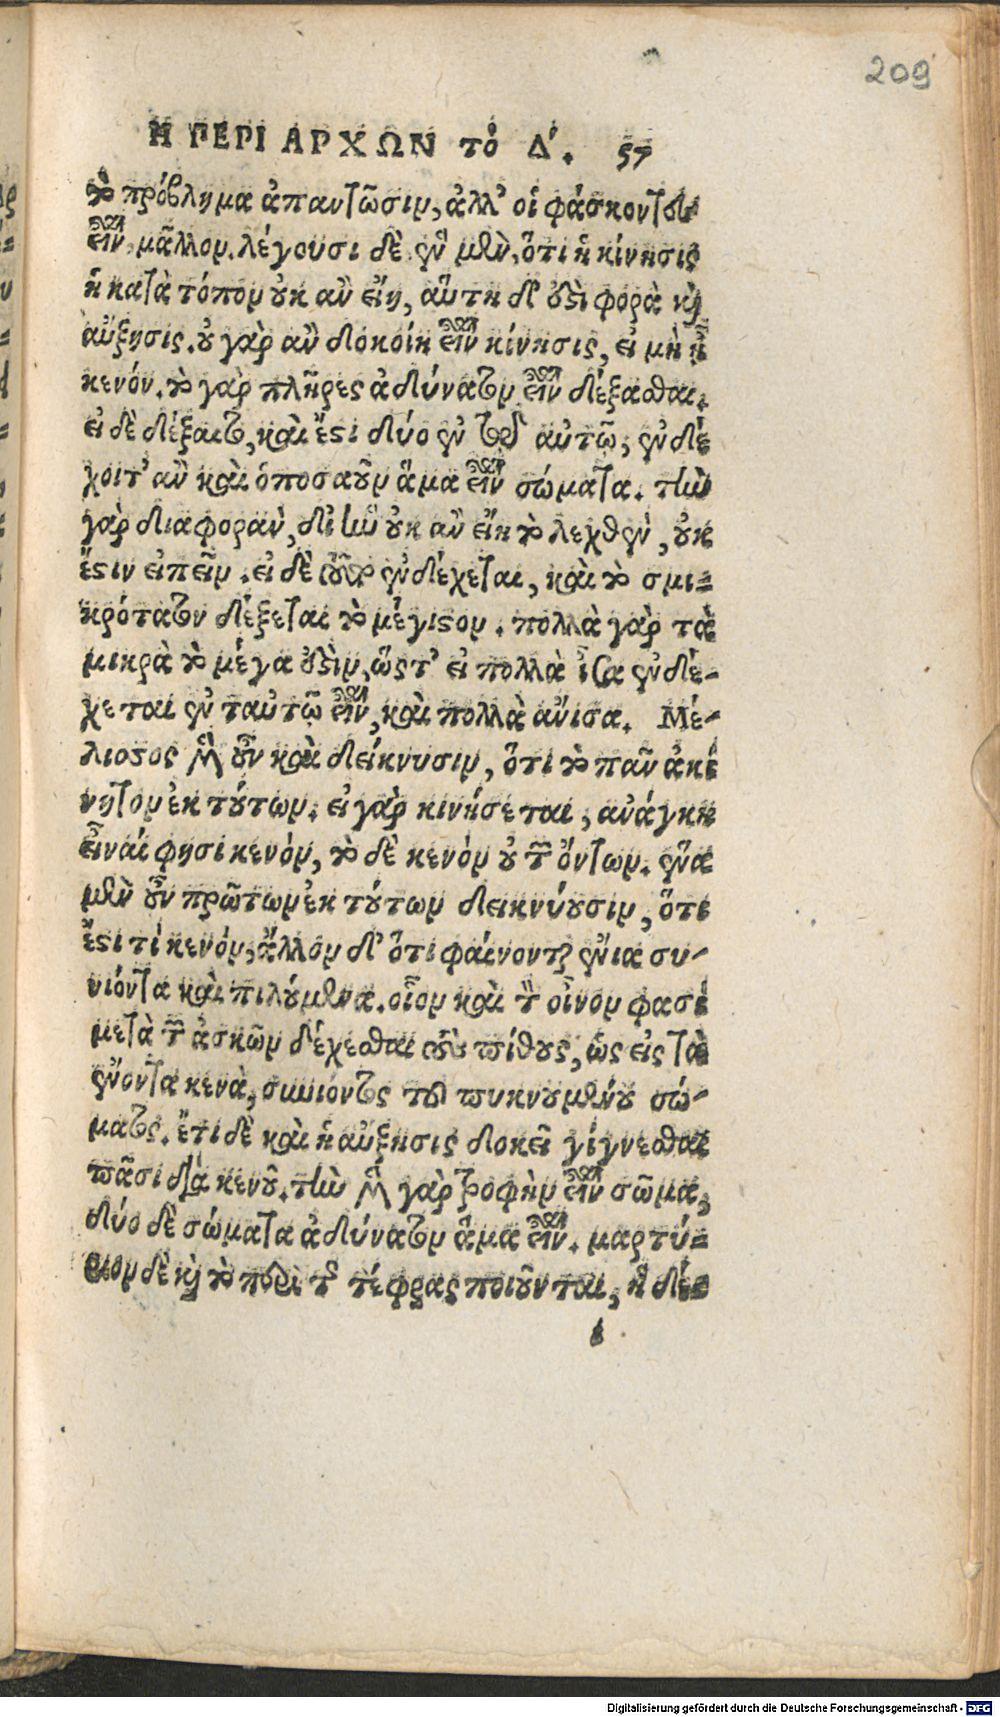 209
Η ΠΕΡΙ ΑΡΧΩΝ τὸ Δ´. 57
τὸ πρόβλημα ἀπαντῶσιν, ἀλλ’ οἱ φάσκοντες
εἶναι μᾶλλον. λέγουσι δὲ ἓν μὲν, ὅτι ἡ κίνησις
ἡ κατὰ τόπον οὐκ ἂν εἴη, αὕτη δ’ ἐστὶ φορὰ καὶ
αὔξησις. οὐ γὰρ ἂν δοκοίη εἶναι κίνησις, εἰ μὴ ᾖ
κενόν. τὸ γὰρ πλῆρες ἀδύνατον εἶναι δέξασθαι.
εἰ δὲ δέξαιτο, καὶ ἔσται δύο ἐν τῷ αὐτῷ, ἐνδέ
χοιτ’ ἂν καὶ ὁποσαοῦν ἅμα εἶναι σώματα. τὴν
γὰρ διαφορὰν, δι’ ἣν οὐκ ἂν εἴη τὸ λεχθὲν, οὐκ
ἔστιν εἰπεῖν. εἰ δὲ τοῦτο ἐνδέχεται, καὶ τὸ σμι=
κρότατον δέξεται τὸ μέγιστον. πολλὰ γὰρ τὰ
μικρὰ τὸ μέγα ἐστὶν, ὥστ’ εἰ πολλὰ ἴσα ἐνδέ-
χεται ἐν ταὐτῷ εἶναι, καὶ πολλὰ ἄνισα. Μέ-
λισσος μὲν οὖν καὶ δείκνυσιν, ὅτι τὸ πᾶν ἀκί
νητον ἐκ τούτων. εἰ γὰρ κινήσεται, ἀνάγκη
εἶναί φησι κενόν, τὸ δὲ κενὸν οὐ τῶν ὄντων. ἕνα
μὲν οὖν πρῶτων ἐκ τούτων δεικνύουσιν, ὅτι
ἔστι τί κενόν, ἄλλον δ’ ὅτι φαίνονται ἔνια συ-
νιόντα καὶ πιλούμενα. οἷον καὶ τὸν οἶνον φασὶ
μετὰ τῶν ἀσκῶν δέχεσθαι τοὺς πίθους, ὡς εἰς τὰ
ἐνόντα κενὰ, συνιόντος τοῦ πυκνουμένου σώ-
ματος. ἔτι δὲ καὶ ἡ αὔξησις δοκεῖ γίγνεσθαι
πᾶσι διὰ κενοῦ. τὴν μὲν γὰρ τροφὴν εἶναι σῶμα,
δύο δὲ σώματα ἀδύνατον ἅμα εἶναι. μαρτύ=
ριον δὲ καὶ τὸ περὶ τῆς τέφρας ποιοῦνται, ἣ δέ=
Digitalisierung gefördert durch die Deutsche Forschungsgemeinschaft - DFG